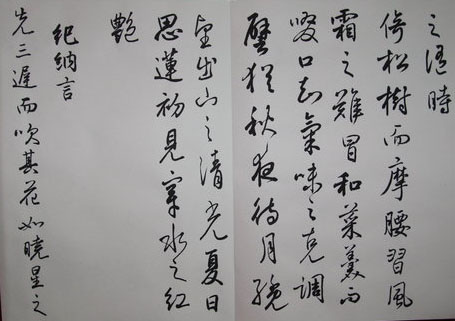 之時
倚松樹而摩腰習風
霜之難冒和菜羹而
啜口知氣味之克調
譬猶秋夜待月纔
望出山之清光夏日
思蓮初見穿水之紅
艷
紀納言
先三遲而吹其花如曉星之